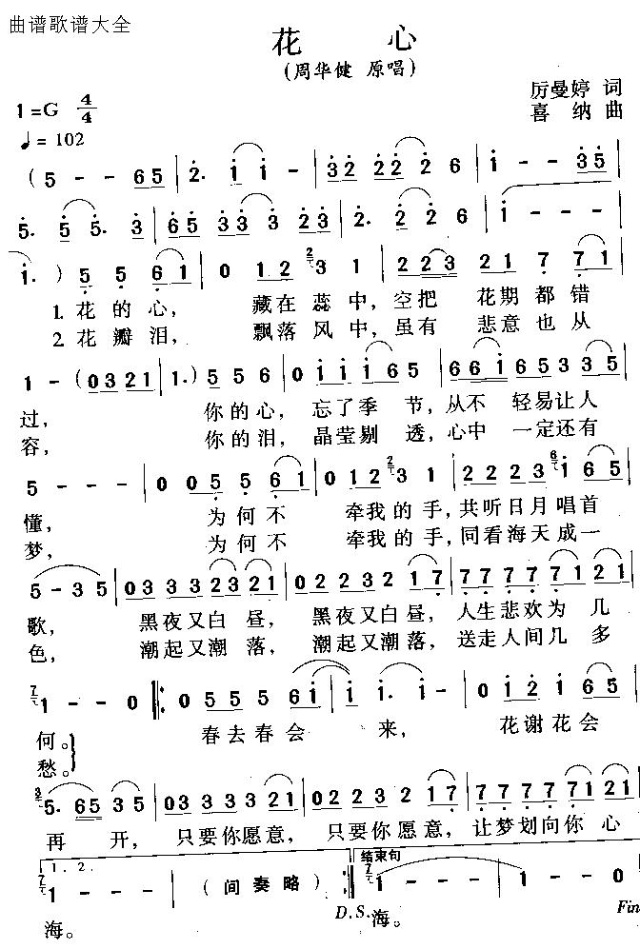 曲谱歌谱大全
花 心
(周华健 原唱)
厉曼婷 词
1=G 4/4
喜 纳 曲
♩= 102
(5 - - 65 | 2. 1 1 1 - | 32 22 2. 2 2 6 | 1 - - 35 |
5. 5 5. 3 | 65 33 3 23 | 2. 2 2 6 | 1 - - - |
1. ) 5 5 6 1 | 0 12 3 1 | 2 2 2 3 21 7 7 1 |
1. 花 的 心, 藏在 蕊 中, 空把 花期 都 错
2. 花 瓣 泪, 飘落 风 中, 虽有 悲意 也 从
1 - (0321 | 1.) 5 5 6 | 0 1 1 1 6 5 | 6 6 1 6 5 3 3 5 |
过, 你的心, 忘了季 节, 从不 轻易让人
容, 你的泪, 晶莹剔 透, 心中 一定还有
5 - - - | 0 0 5 5 6 1 | 0 1 2 3 1 | 2 2 2 3 1 6 5 |
懂, 为何不 牵我的手, 共听日月唱首
梦, 为何不 牵我的手, 同看海天成一
5 - 3 5 | 0 3 3 3 3 2 3 2 1 | 0 2 2 3 2 2 1 7 | 7 7 7 7 7 1 2 1 |
歌, 黑夜又白 昼, 黑夜又白昼, 人生悲欢为 几
色, 潮起又潮 落, 潮起又潮落, 送走人间几 多
1 - - 0 | 0 5 5 5 6 1 | 1 1. 1 - | 0 1 2 1 6 5 |
何。 春去春会 来, 花谢花会
愁。
5. 65 3 5 | 0 3 3 3 3 3 2 1 | 0 2 2 3 2 2 1 7 | 7 7 7 7 7 1 2 1 |
再 开, 只要你愿意, 只要你愿意, 让梦划向你 心
1. 2. 结束句
1 - - - | (间奏略) 1 - - - | 1 - - 0
海。 D.S. 海。 Fin